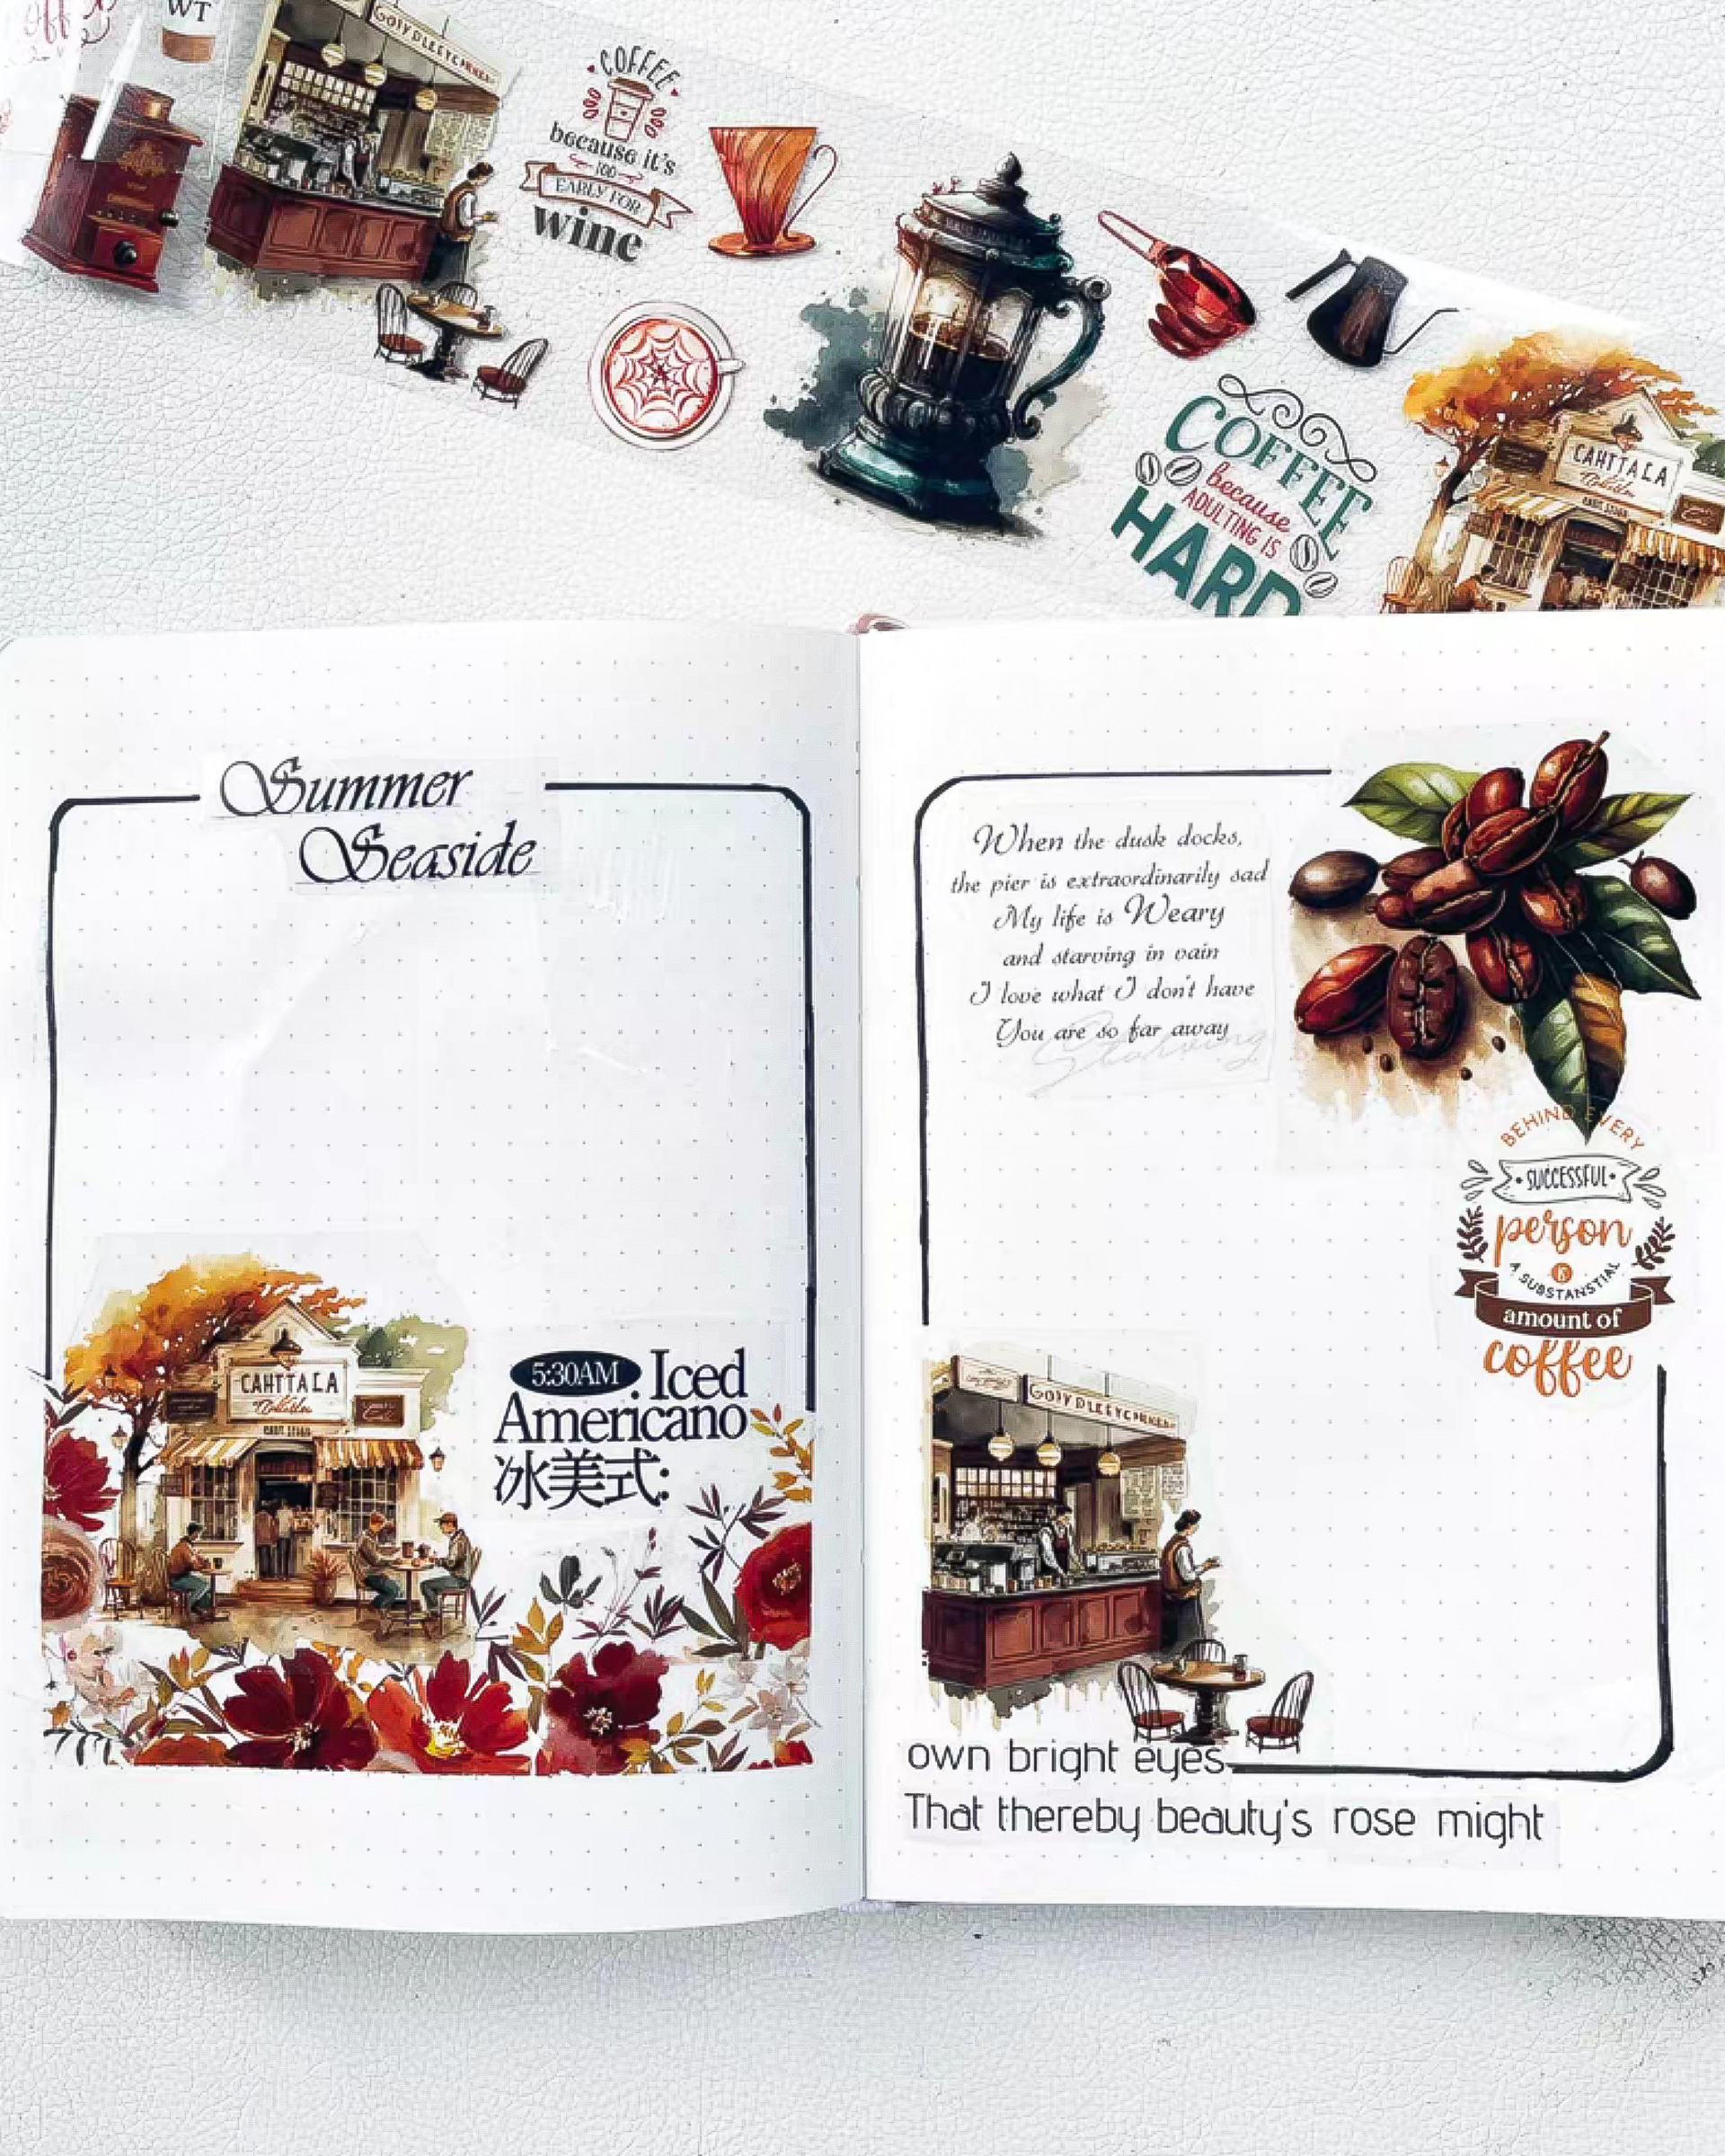 WT
COFFEE
because it's
TOO
EARLY FOR
wine
COFFEE
because
ADULTING IS
HARD
CAHTTALA
Summer
Seaside
When the dusk docks,
the pier is extraordinarily sad
My life is Weary
and starving in vain
I love what I don't have
You are so far away
BEHIND EVERY
SUCCESSFUL
person
IS
A SUBSTANSTIAL
amount of
coffee
CAHTTALA
5:30AM Iced
Americano
冰美式:
own bright eyes
That thereby beauty's rose might